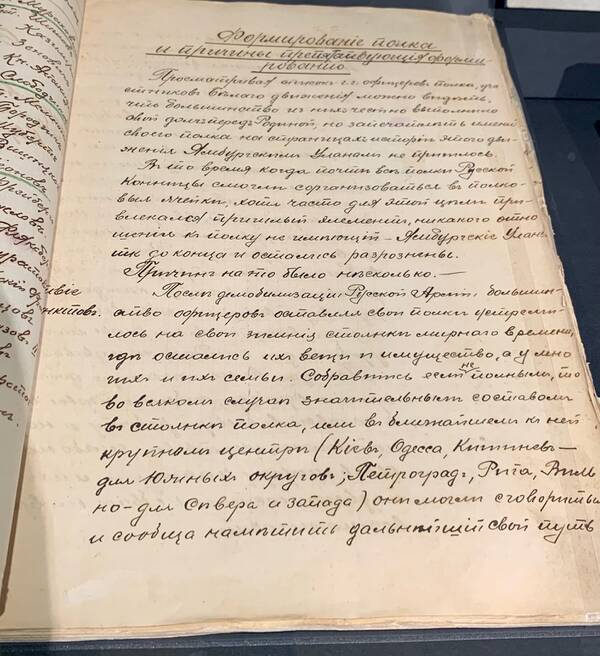 Формированіе полка
и причины препятсвующія форми
рованію
Просматривая списокъ г.г. офицеровъ полка, уча
стниковъ бѣлаго движенія можно видѣть,
что большинство из нихъ честно выполнило
свой долгъ передъ Родиной, но запечатлѣть имени
своего полка на страницахъ исторіи этого дви-
женія Ямбургскимъ Уланамъ не пришлось.
Въ то время когда почти всѣ полки Русской
Конницы смогли сорганизоваться въ полко-
выя ячейки, хотя часто для этой цѣли при
влекался пришлый элементъ, никакого отно
шенія къ полку не имѣющій - Ямбургскіе
до конца и остались разрознены.
Причинъ на то было нѣсколько.—
Послѣ демобилизаціи Русской Арміи большин-
ство офицеровъ оставляя свои полки устреми-
лось на свои зимнія стоянки мирнаго времени,
гдѣ остались ихъ вещи и имущество, а у мно
гихъ и ихъ семьи. Собравшись если не полнымъ, то
во всякомъ случаѣ значительнымъ составомъ
въ стоянкѣ полка, или въ ближайшемъ къ ней
крупномъ центрѣ (Кіевъ, Одесса, Кишиневъ—
для Южныхъ округовъ; Петроградъ, Рига, Виль
но - для Сѣвера и запада) они могли сговориться
и сообща намѣтить дальнѣйшій свой путь